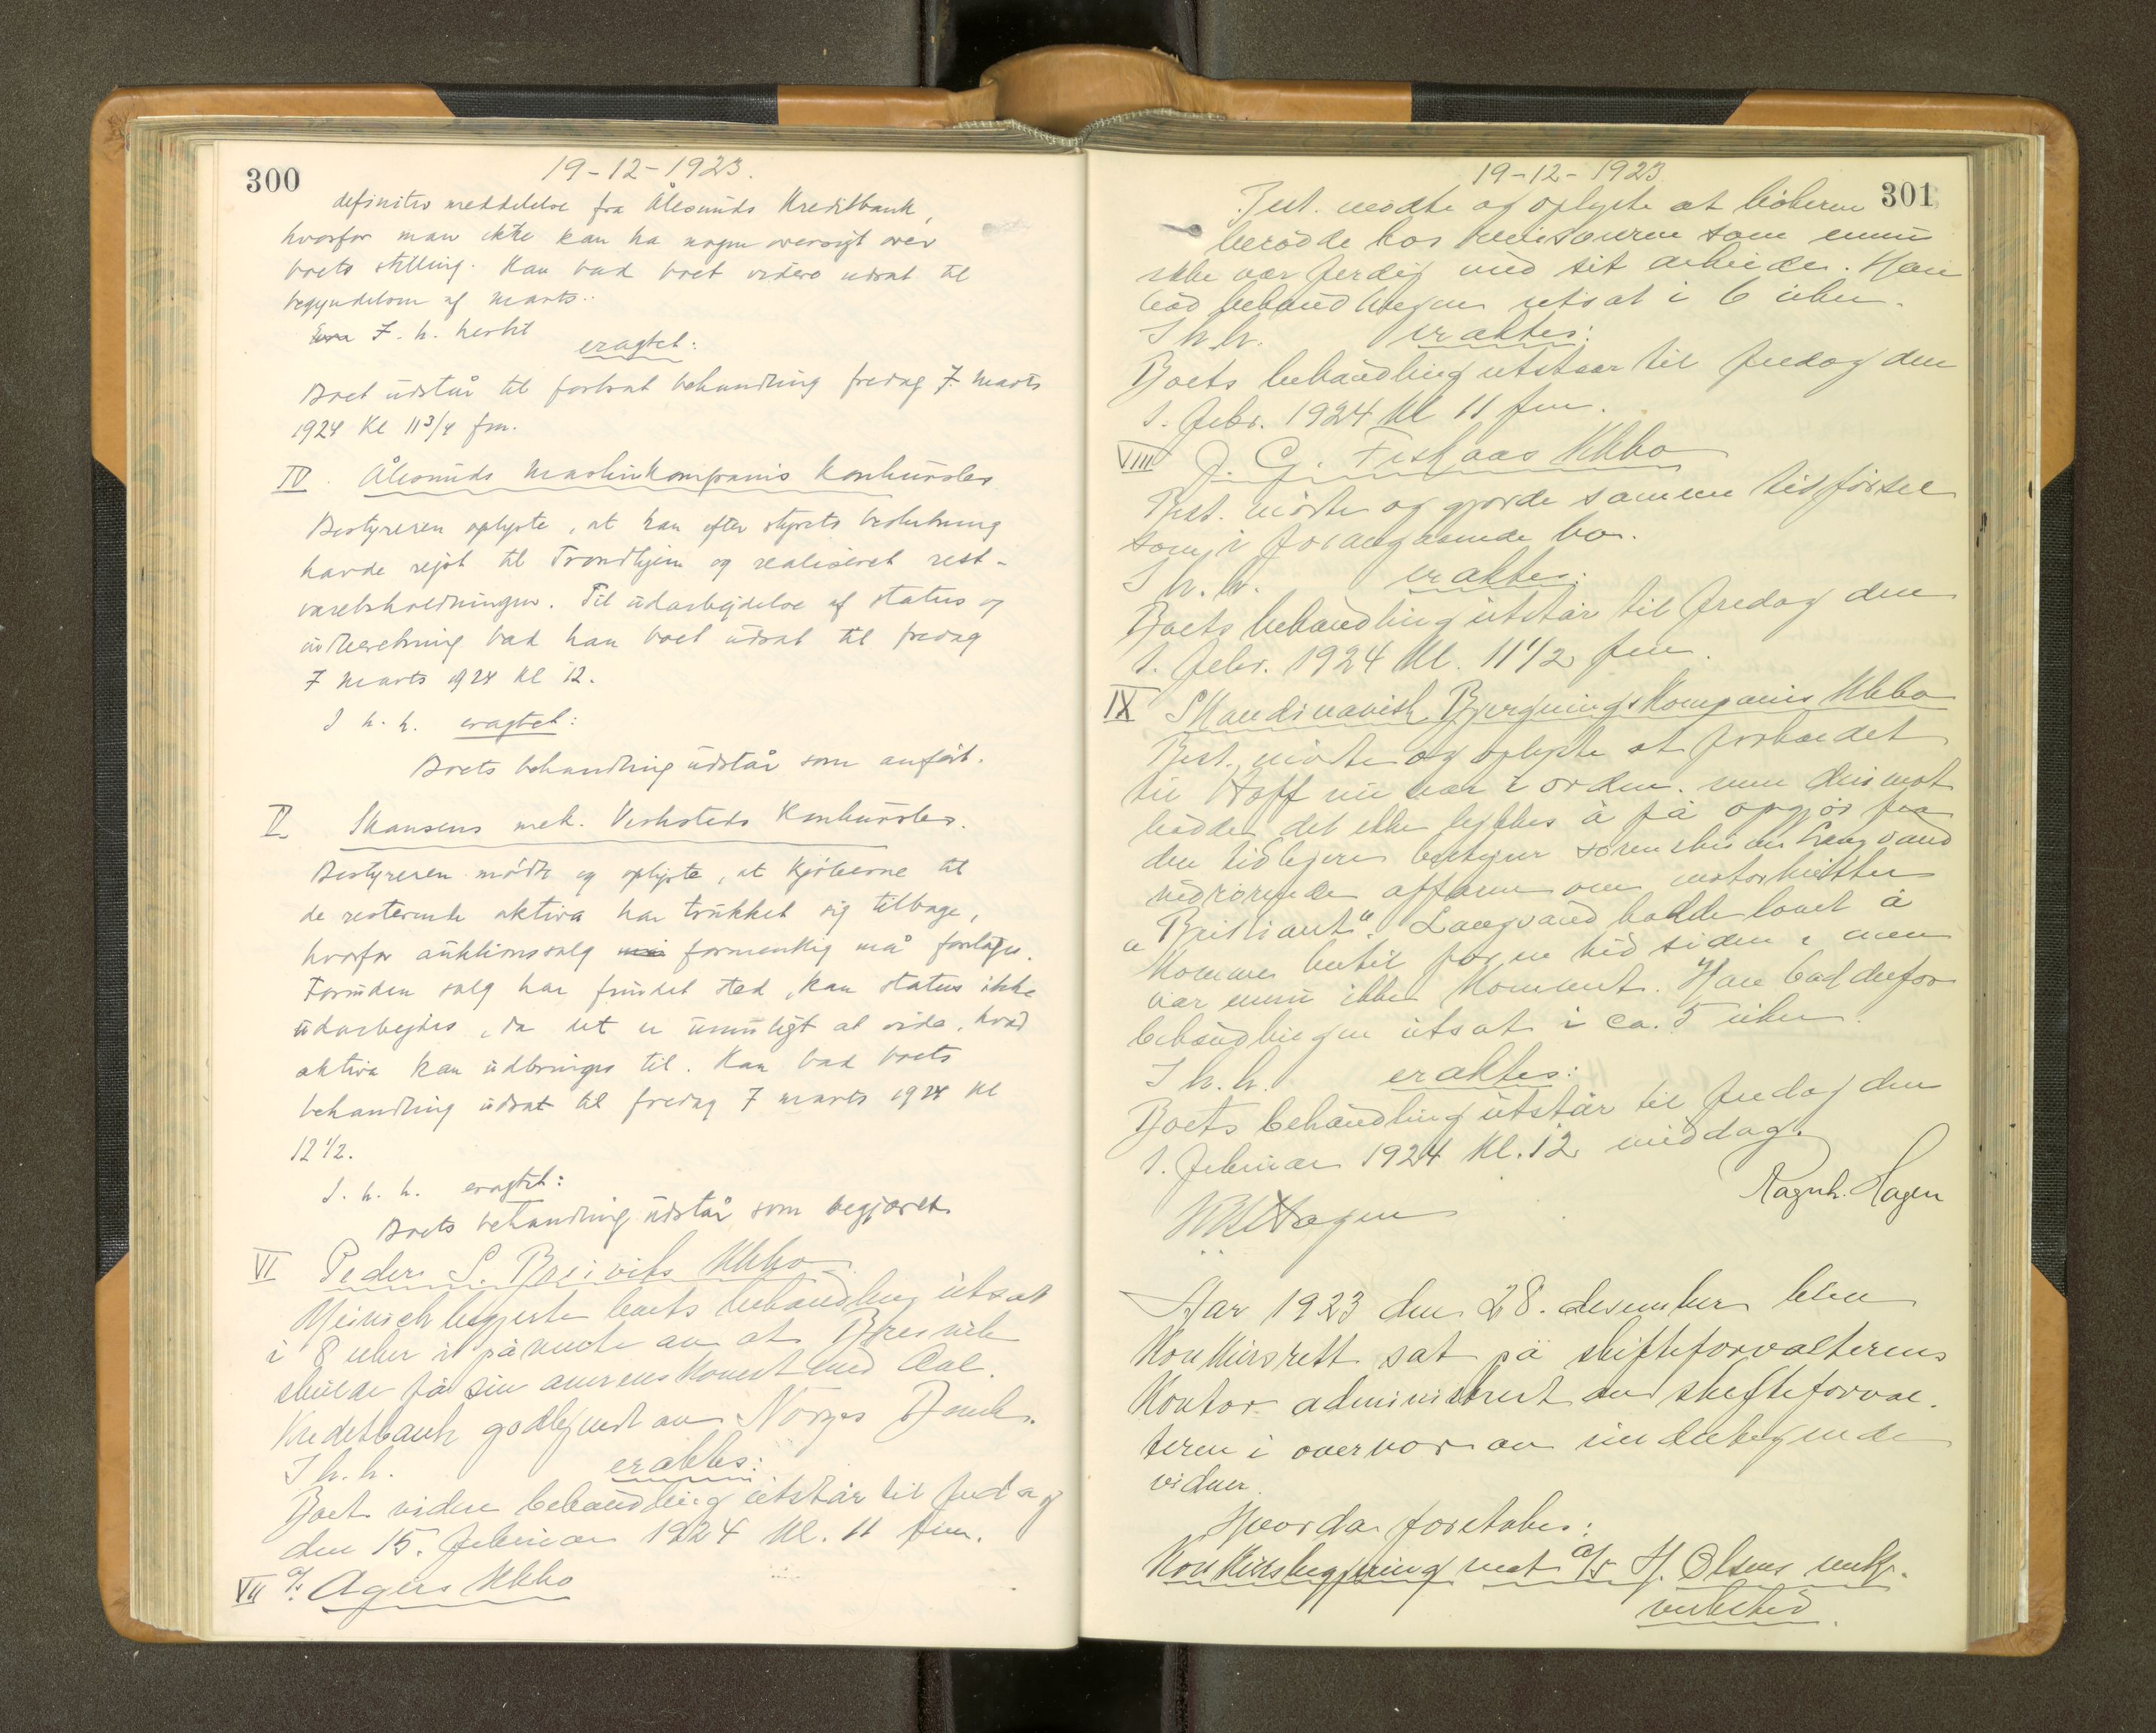 300
19-12-1923.
definitiv meddelelse fra Ålesunds Kreditbank,
hvorfor man ikke kan ha nogen oversigt over
boets stilling. Han bad boet videre udsat til
begyndelsen af marts.
I. h. hertil
eragtet:
Boet udstår til fortsat behandling fredag 7. marts
1924 Kl 11 3/4 fm.
IV. Ålesunds Maskinkompanis Konkursbo
Bestyreren oplyste, at han efter styrets beslutning
havde rejst til Trondhjem og realiseret rest-
varebeholdningen. Til udarbejdelse af status og
indberetning bad han boet udsat til fredag
7 marts 1924 Kl 12.
I h. h. eragtet:
Boets behandling udstår som anført.
V Skansens mek. Verksteds Konkursbo.
Bestyreren mødte og oplyste, at kjøberne til
de resterende aktiva har trukket sig tilbage,
hvorfor auktionssalg formentlig må foretages.
Forinden salg har fundet sted, kan status ikke
udarbejdes, da det er umuligt at vide, hvad
aktiva kan udbringes til. Han bad boets
behandling udsat til fredag 7 marts 1924 Kl
12 1/2.
I. h. h. eragtet:
Boets behandling udstår som begjæret
VI Peder S. Breiviks Kkbo
begjærte boets behandling utsat
i 8 uker i påvente av at Breivik
skulde få sin overenskomst med Aal.
Kreditbank godkjendt av Norges Bank.
I h. h. eraktes:
Boets videre behandling utstår til fredag
den 15. februar 1924 Kl. 11 fm.
VII A/S Agirs Kkbo
19-12-1923
301
Best. mødte og oplyste at bøkerne
berodde hos revisoren som ennu
ikke var ferdig med sit arbeide. Han
bad behandlingen utsat i 6 uker.
I h. h. eraktes:
Boets behandling utstaar til fredag den
1. febr. 1924 Kl 11 fm.
VIII J. G. Fiskaas Kkbo
Best. møtte og gjorde samme tilførsel
som i foregaaende bo.
I h. h. eraktes:
Boets behandling utstår til fredag den
1. febr. 1924 Kl. 11 1/2 fm.
IX Skandinavisk Bjergningskompanis Kkbo
Best. møtte og oplyste at forholdet
til Hoff nu var i orden. men derimot
hadde det ikke lykkes å få opgjør fra
den tidligere bestyrer Langvand
vedrørende affæren om motorkutter
"Brilliant". Langvand hadde lovet å
komme hertil for en tid siden, men
var ennu ikke kommet. Han bad derfor
behandlingen utsat i ca. 5 uker.
I h. h. eraktes:
Boets behandling utstår til fredag den
1. februar 1924 Kl. 12 middag.
Ragnh. Hagen
Hagen
Aar 1923 den 28. desember blev
Konkursrett sat på skifteforvalterens
Kontor administrert av skifteforval-
teren i overvær av undertegnede
vidner.
Hvorda foretokes:
Konkursbegjæring mot A/S H. Olsens mek.
verksted.